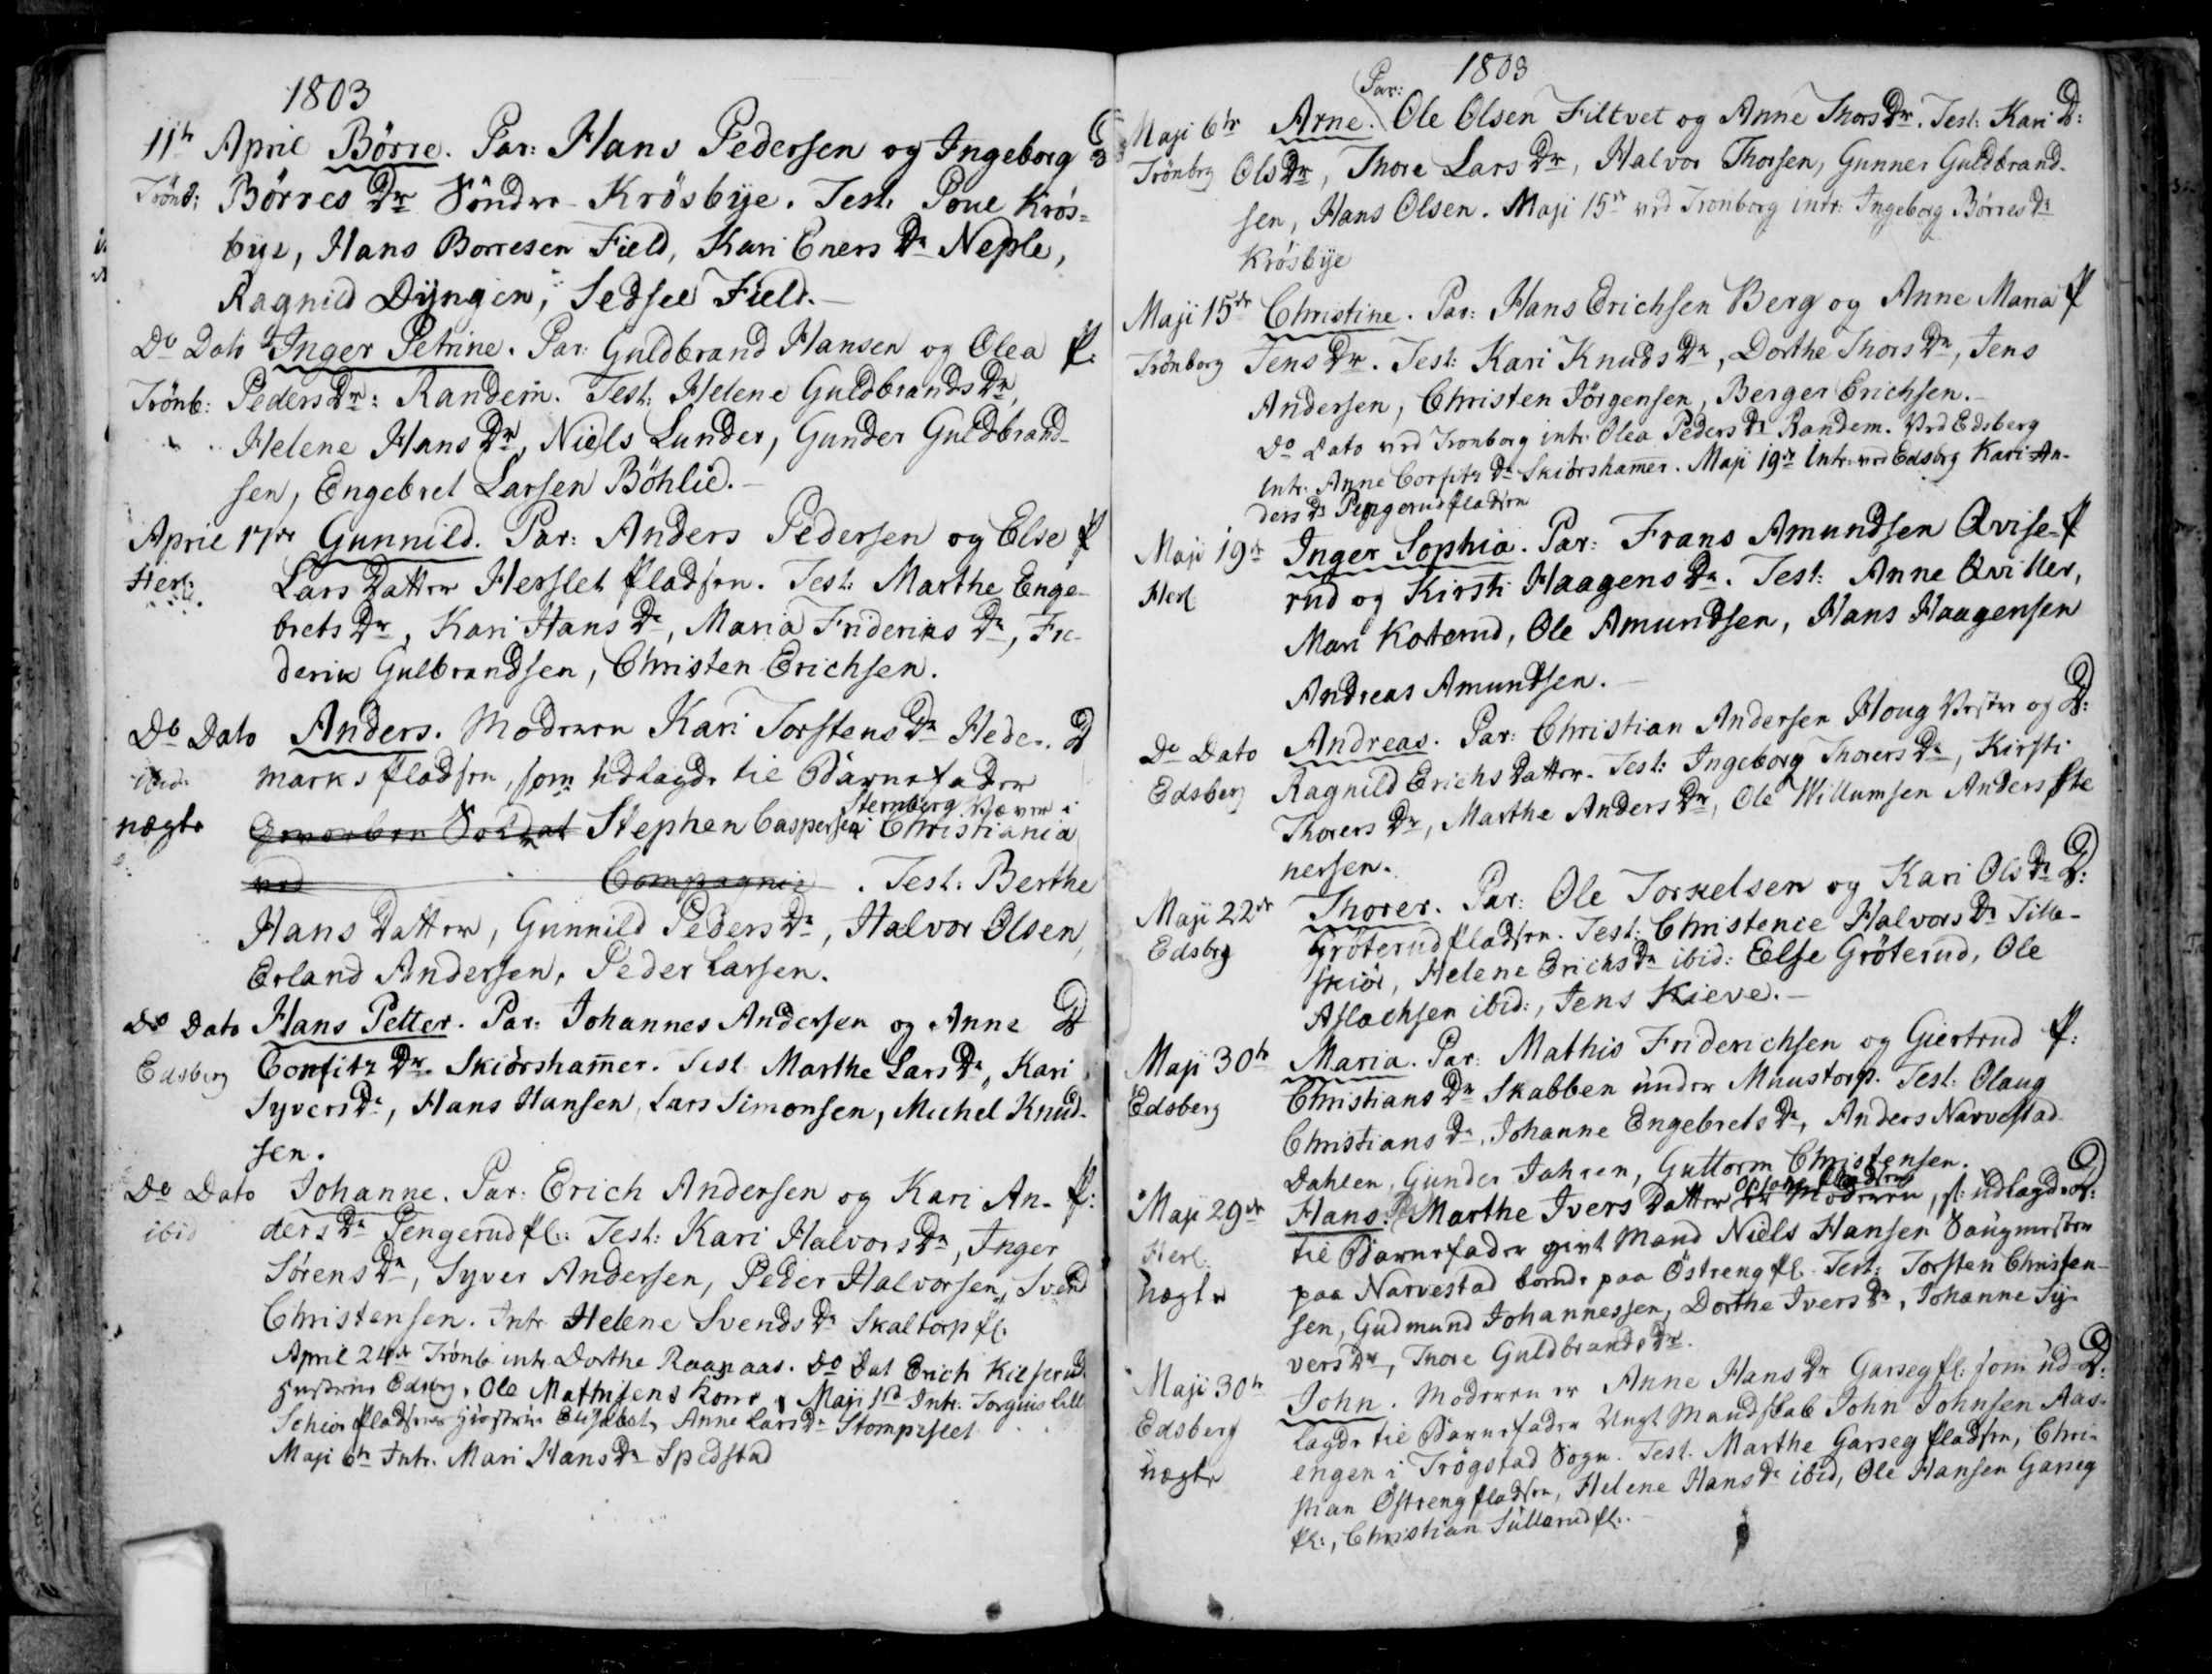 1803
11te April Börre. Par: Hans Pedersen og Ingeborg
Trönb: Börres Dr Söndre Krösbye. Test: Povel Krös=
bye, Hans Borresen Field, Kari Eners Dr Neple,
Ragnild Dyngen, Sedsel Field.
Do Dato Inger Petrine. Par: Guldbrand Hansen og Olea f:
Trönb: Peders Dr: Randem. Test: Helene Guldbrands Dr,
Helene Hans Dr, Niels Lunder, Gunder Guldbrand-
sen, Engebret Larsen Böhlie.
April 17de Gunnild. Par: Anders Pedersen og Else f
Herl: Lars Datter Herslet pladsen. Test: Marthe Enge-
brets Dr, Kari Hans Dr, Maria Frideriks Dr, Fri-
derik Gulbrandsen, Christen Erichsen.
Do Dato Anders. Moderen Kari Torstens Dr Hede- D
ibid: marks pladsen, som udlagde til Barnefader
Sternberg Væver i
nægte Gevorben Soldat Stephen Caspersen Christiania
ved Compagnie. Test: Berthe
Hans Datter, Gunnild Peders Dr, Halvor Olsen,
Erland Andersen, Peder Larsen.
Do Dato Hans Petter. Par: Johannes Andersen og Anne D
Edsberg Corfitz Dr. Skiörshamer. Test Marthe Lars Dr, Kari
Syvers Dr, Hans Hansen, Lars Simonsen, Michel Knud-
sen.
Do Dato Johanne. Par: Erich Andersen og Kari An- f:
ibid ders Dr Pengerud pl: Test: Kari Halvors Dr, Inger
Sörens Dr, Syver Andersen, Peder Halvorsen, Svend
Christensen. Intr Helene Svends Dr Skaltorp pl:
April 24de Trönb intr Dorthe Raanaas. Do Dat Erich Kilserud
Hustrue Edsbrg, Ole Mathisens Kone, Maji 1ste Intr. Torguis Lill
Schiör pladsens Hustrue Elisabet, Anne Lars Dr Stompeslet
Maji 6te Intr. Mari Hans Dr Spedstad
1803
Par:
Maji 6te Arne. Ole Olsen Filtvet og Anne Thors Dr. Test: Kari D:
Trönbrg Ols Dr, Thore Lars Dr, Halvor Thorsen, Gunner Guldbrand-
sen, Hans Olsen. Maji 15de ved Tronborg intr: Ingeborg Börres Dr
Krösbye
Maji 15de Christine. Par: Hans Erichsen Berg og Anne Maria f
Trönborg Jens Dr. Test: Kari Knuds Dr, Dorthe Thors Dr, Jens
Andersen, Christen Jörgensen, Berger Erichsen.
Do Dato ved Tronborg intr. Olea Peders Dr Randem. Ved Edsberg
Intr. Anne Corfitz Dr Skiörshamer. Maji 19de Intr. ved Edsbrg Kari An-
ders Dr Pengerudpladsen
Maji 19de Inger Sophia. Par: Frans Amundsen Qvise- f
Herl rud og Kirsti Haagens Dr. Test: Anne Qviller,
Mari Koterud, Ole Amundsen, Hans Haagensen
Andreas Amundsen.
Do Dato Andreas. Par: Christian Andersen Houg Vestre og D:
Edsberg Ragnild Erichs Datter. Test: Ingeborg Thorers Dr, Kirsti
Thorers Dr, Marthe Anders Dr, Ole Willumsen Anders Ste
nersen.
Maji 22de Thorer. Par: Ole Torkelsen og Kari Ols Dr D:
Edsbrg Gröterudpladsen. Test: Christence Halvors Dr Lille-
skiör, Helene Erichs Dr ibid: Else Gröterud, Ole
Aslachsen ibid:, Jens Kieve.
Maji 30te Maria. Par: Mathis Friderichsen og Giertrud f:
Edsberg Christians Dr Skabben under Muustorp. Test: Olaug
Christians Dr, Johanne Engebrets Dr, Anders Narvestad
Dahlen, Gunder Jahren, Guttorm Christensen.
Maji 29de Hans. Marthe Ivers Datter er Moderen, udlagde D:
Herl. til Barnefader givt Mand Niels Hansen Saugmester
nægte paa Narvestad boende paa Östreng pl. Test: Torsten Christen-
sen, Gudmund Johannessen, Dorthe Ivers Dr, Johanne Sy-
vers Dr, Thore Guldbrands Dr.
Maji 30te John. Moderen er Anne Hans Dr Garseg pl: som ud- D:
Edsberg lagde til Barnefader Ungt Mandskab John Johnsen Aas-
nægte engen i Trögstad Sogn. Test. Marthe Garseg pladsen, Chri-
stian Östreng pladsen, Helene Hans Dr ibid, Ole Hansen Garseg
pl:, Christian Sullerud pl: